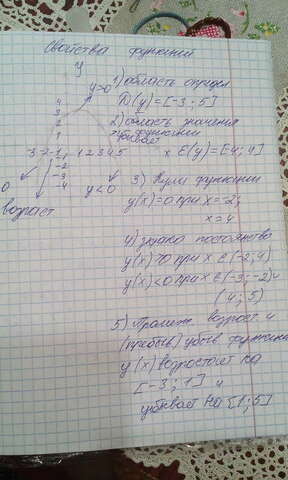 Свойства функции
y
y>0
1) область опред
D(y)=[-3;5]
4
3
2
1
2) область значения
функции
убывает
3 2 -1, 1 2 3 4 5 x
E(y)=[-4;4]
-2
-3
-4
0
возраст
y<0
3) Нули функции
y(x)=0 при x=-2;
x=4
4) знако постоянство
y(x)>0 при x∈(-2;4)
y(x)<0 при x∈(-3;-2)и
(4;5)
5) Промеж. возраст. и
убыв функции
y(x) возростает на
[-3;1] и
убывает на [1;5]